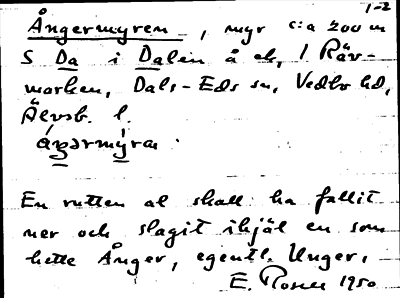 1-2
Ångermyren, myr c:a 200 m
S Da i Dalen å ek, 1 Räv-
marken, Dals-Eds sn, Vedbo hd,
Älvsb. l.
En rutten al skall ha fallit
ner och slagit ihjäl en som
hette Ånger, egentl. Unger.
E. Rosell 1950